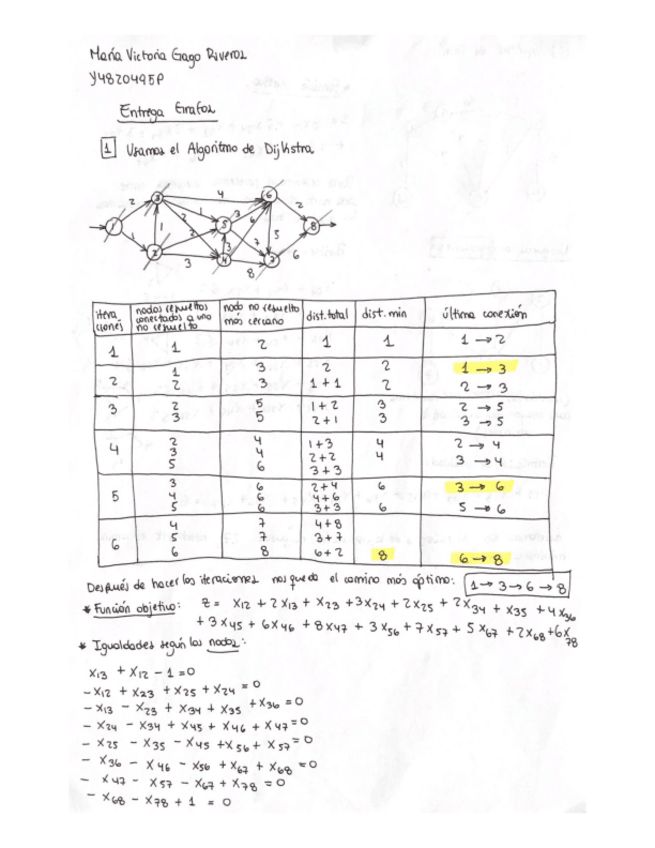 María Victoria Gago Riveros
Y4820495P
Entrega Grafos
1 Usamos el Algoritmo de Dijkstra
2 4 2
1 1 2 2 3 6 5
1 3 3 7 8 6
1 2 3 4 5 6 7 8
itera ciones | nodos resueltos conectados a uno no resuelto | nodo no resuelto más cercano | dist. total | dist. min | última conexión
1 | 1 | 2 | 1 | 1 | 1 → 2
2 | 1 | 3 | 2 | 2 | 1 → 3
2 | 3 | 1 + 1 | 2 | 2 → 3
3 | 2 | 5 | 1 + 2 | 3 | 2 → 5
3 | 5 | 2 + 1 | 3 | 3 → 5
4 | 2 | 4 | 1+3 | 4 | 2 → 4
3 | 4 | 2+2 | 4 | 3 → 4
5 | 6 | 3+3
5 | 3 | 6 | 2+4 | 6 | 3 → 6
4 | 6 | 4+6
5 | 6 | 3+3 | 6 | 5 → 6
6 | 4 | 7 | 4+8
5 | 7 | 3+7
6 | 8 | 6+2 | 8 | 6 → 8
Después de hacer las iteraciones nos queda el camino más óptimo: 1 → 3 → 6 → 8
* Función objetivo: z = x12 + 2x13 + x23 + 3x24 + 2x25 + 2x34 + x35 + 4x36
+ 3x45 + 6x46 + 8x47 + 3x56 + 7x57 + 5x67 + 2x68 + 6x78
* Igualdades según los nodos:
x13 + x12 - 1 = 0
- x12 + x23 + x25 + x24 = 0
- x13 - x23 + x34 + x35 + x36 = 0
- x24 - x34 + x45 + x46 + x47 = 0
- x25 - x35 - x45 + x56 + x57 = 0
- x36 - x46 - x56 + x67 + x68 = 0
- x47 - x57 - x67 + x78 = 0
- x68 - x78 + 1 = 0